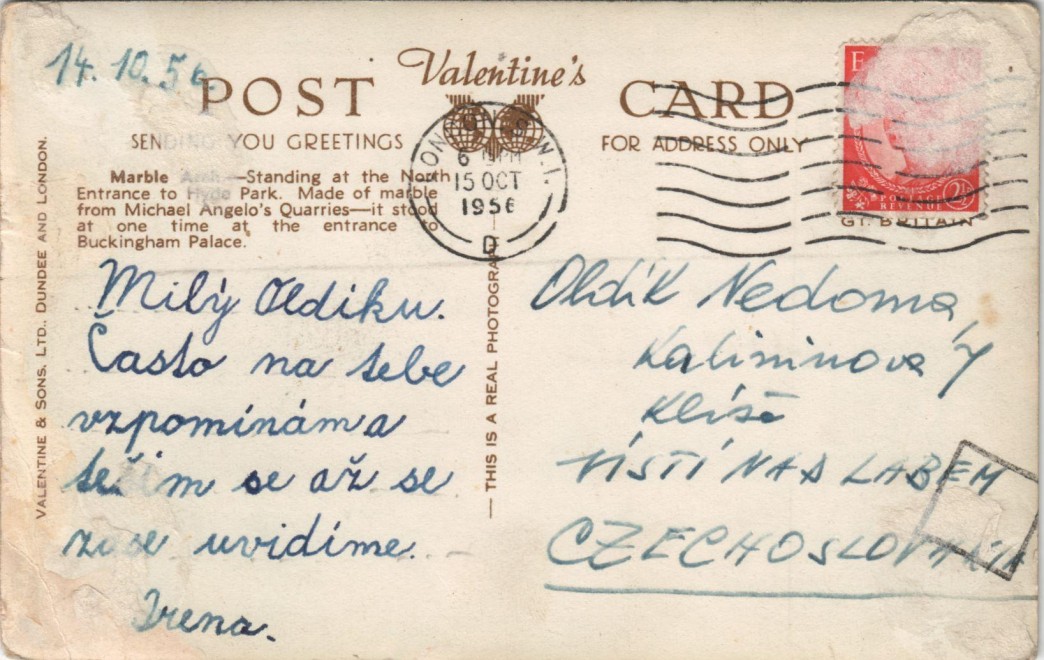 14.10.56
Valentine's
POST CARD
SENDING YOU GREETINGS
FOR ADDRESS ONLY
Marble Arch.—Standing at the North
Entrance to Hyde Park. Made of marble
from Michael Angelo's Quarries—it stood
at one time at the entrance to
Buckingham Palace.
VALENTINE & SONS, LTD., DUNDEE AND LONDON.
— THIS IS A REAL PHOTOGRAPH
LONDON W.1.
6 PM
15 OCT
1956
D
E R
POSTAGE
REVENUE
2½
GT. BRITAIN
Milý Oldíku.
Často na tebe
vzpomínám a
těším se až se
zase uvidíme.
Irena.
Oldík Nedoma,
Kalininova 7
Klíše
ÚSTÍ NAD LABEM
CZECHOSLOVAKIA